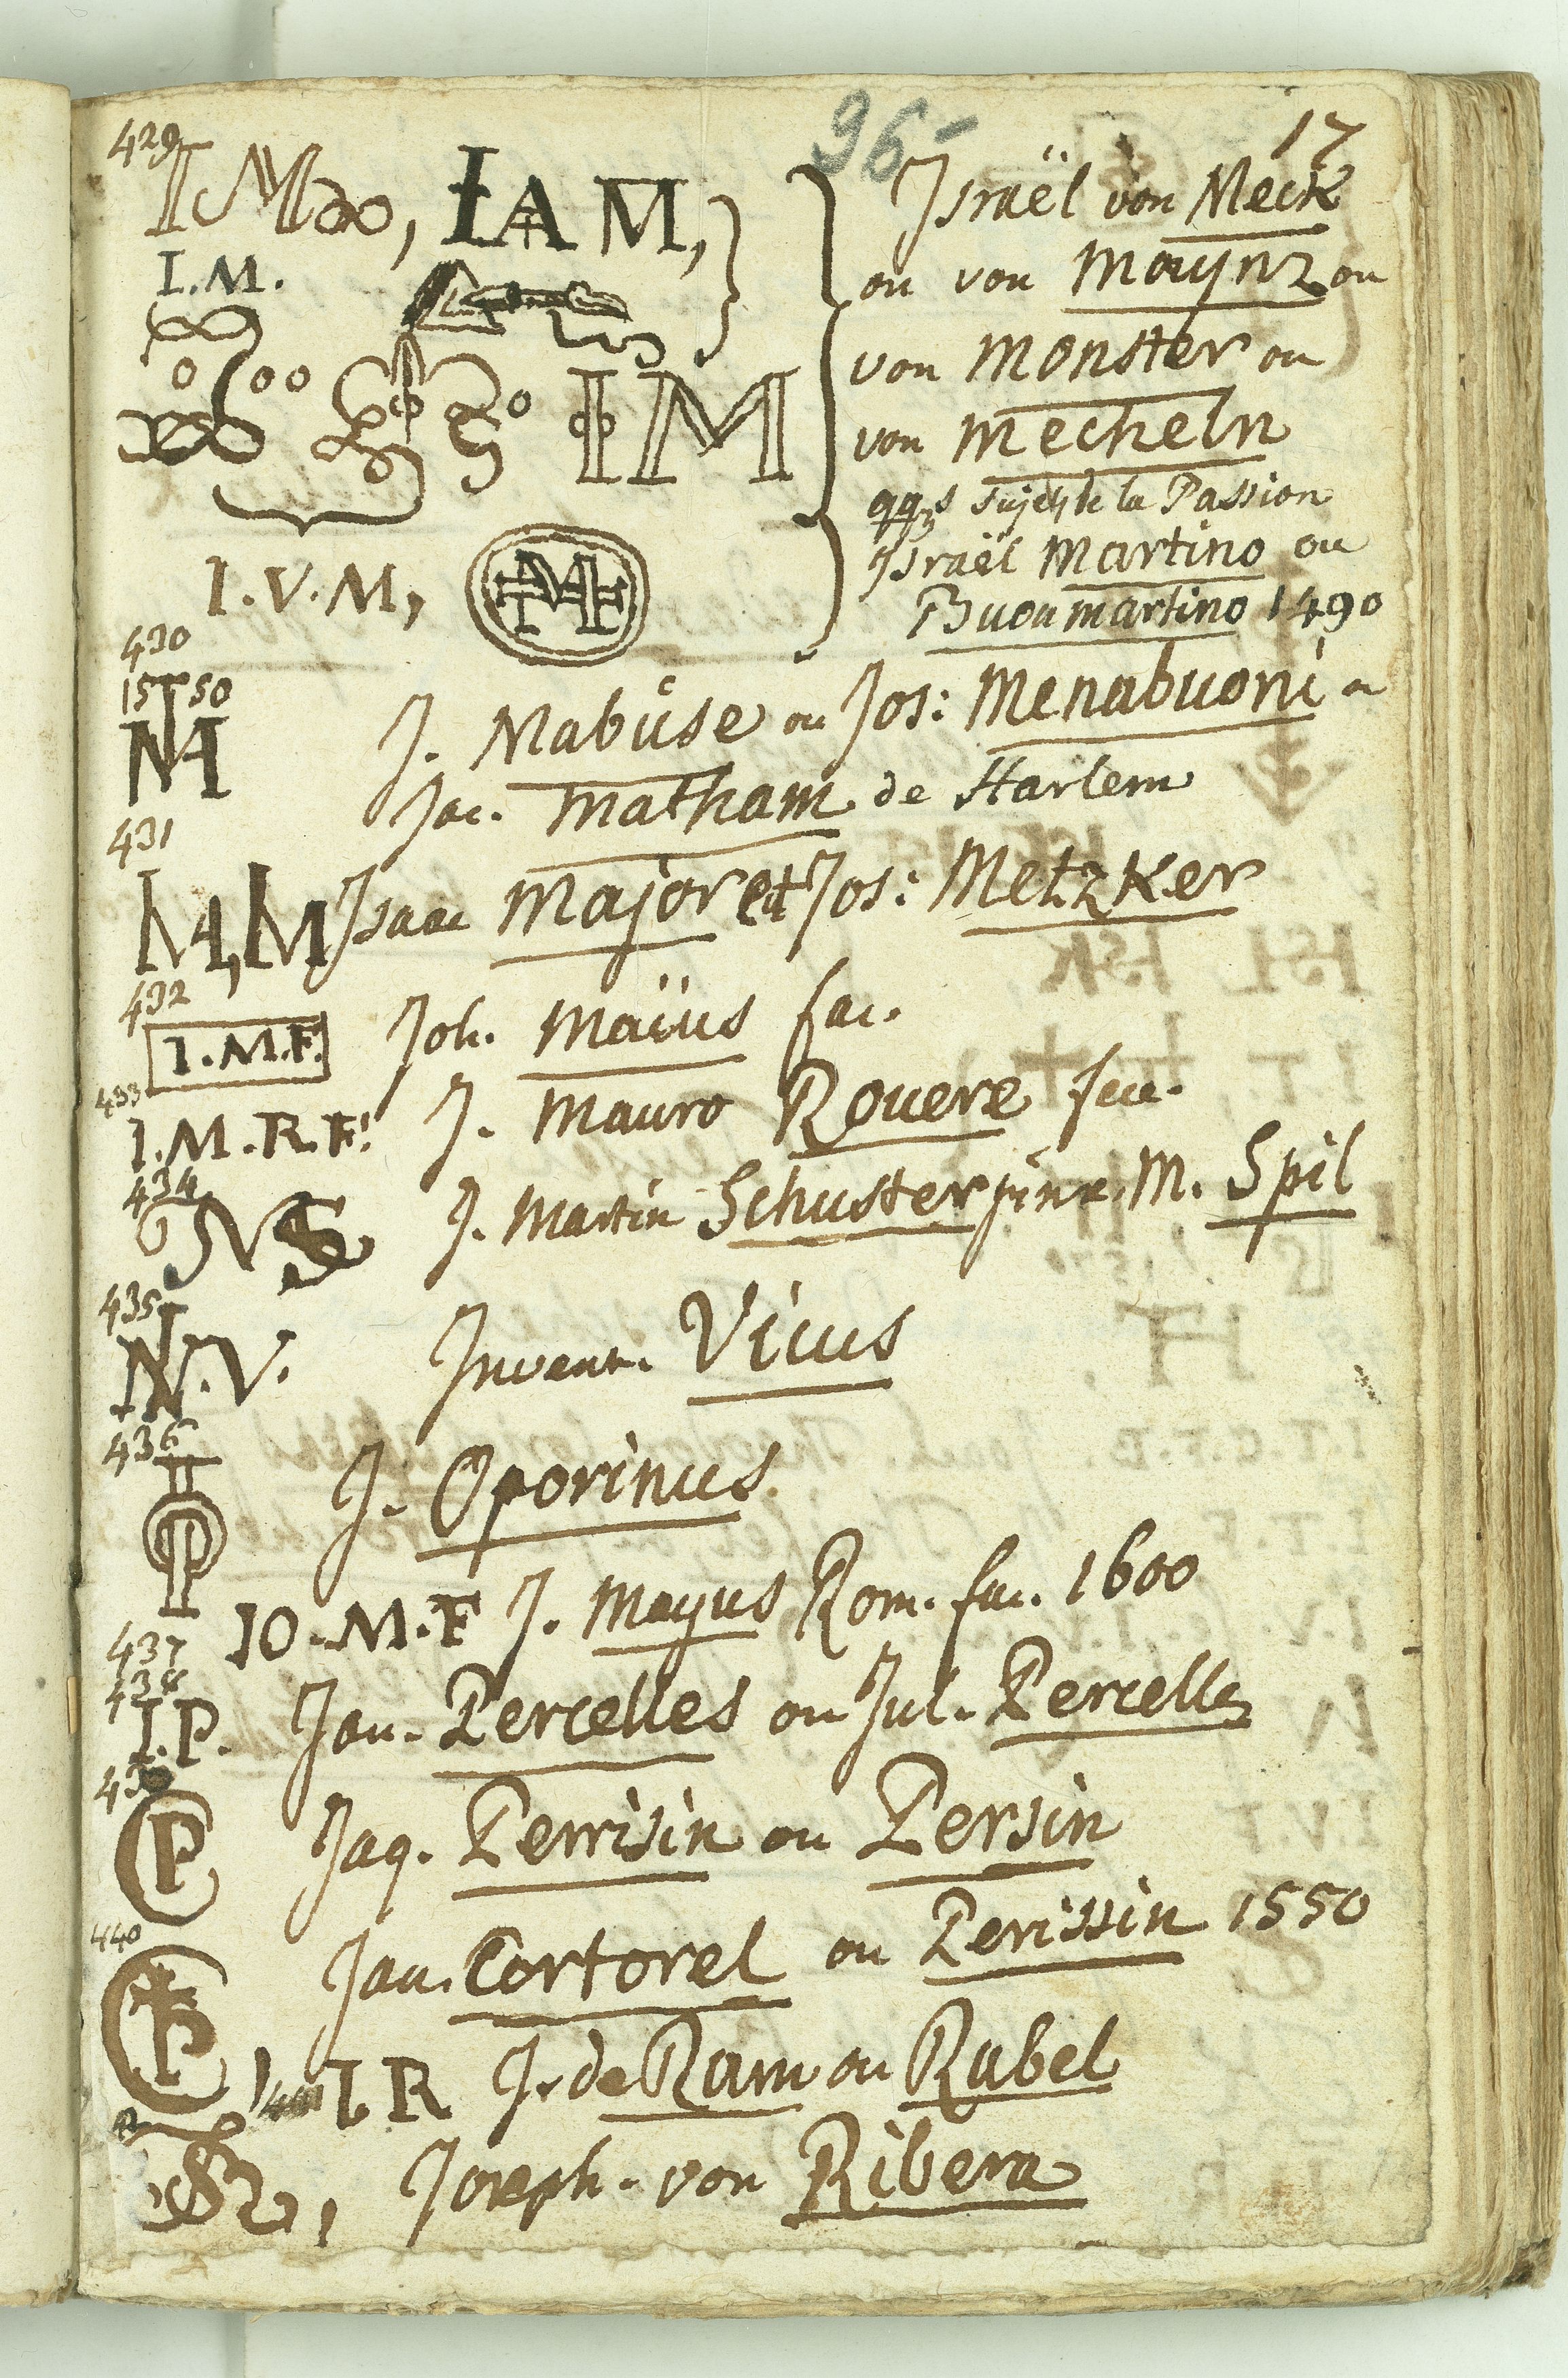 96-
17
429
IM, IAM, Israël von Meck
I.M. ou von Maynz ou
von Monster ou
IM von Mecheln
qqs sujets de la Passion
I.V.M, Israël Martino ou
Buonmartino 1490
430
1550
J. Mabuse ou Jos: Menabuoni ou
Jac. Matham de Harlem
431
M, M Isaac Major et Jos: Metzker
432
I.M.F. Joh. Maïus fac.
433
I.M.R.F. J. Mauro Rouere fec.
434
J. Martin Schuster pinx. M. Spil
435
N.V. Invent. Vicus
436
J. Oporinus
437
IO.M.F J. Mayus Rom. fac. 1600
438
I.P. Jan. Percelles ou Jul. Percelles
439
CP Jaq. Perrisin ou Persin
440
Jan. Cortorel ou Perissin 1550
IR J. de Ram ou Rabel
Joseph. von Ribera